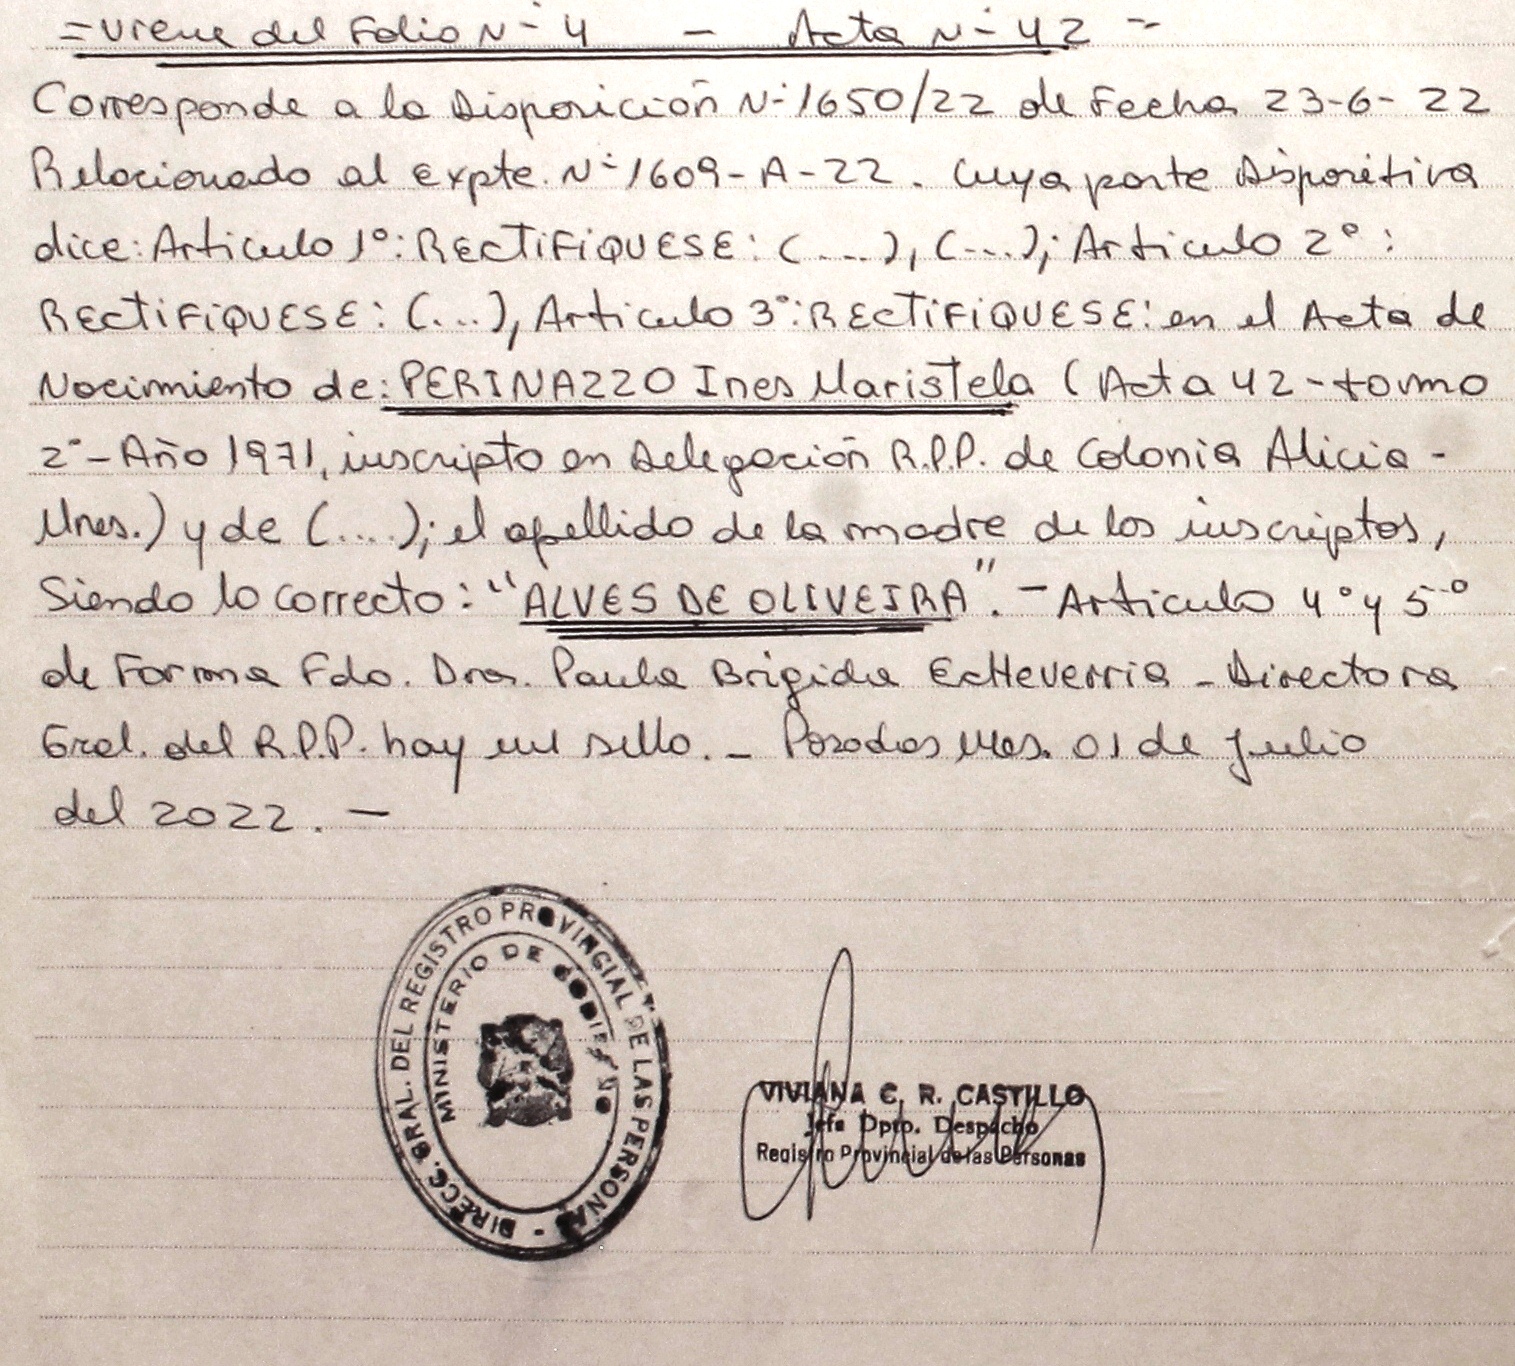 =Viene del Folio N° 4 — Acta N° 42 =
Corresponde a la Disposición N° 1650/22 de Fecha 23-6-22
Relacionado al Expte. N° 1609-A-22. Cuya parte Dispositiva
dice: Articulo 1°: RECTIFIQUESE: (....), (...); Articulo 2°:
RECTIFIQUESE: (...), Articulo 3°: RECTIFIQUESE: en el Acta de
Nacimiento de: PERINAZZO Ines Maristela (Acta 42 - tomo
2° - Año 1971, inscripto en Delegación R.P.P. de Colonia Alicia -
Mnes.) y de (....); el apellido de la madre de los inscriptos,
Siendo lo correcto: "ALVES DE OLIVEIRA". - Articulo 4° y 5°
de Forma Fdo. Dra. Paula Brigida Echeverria - Directora
Gral. del R.P.P. hay un sello. - Posadas Mes. 01 de Julio
del 2022. -
DIRECC. GRAL. DEL REGISTRO PROVINCIAL DE LAS PERSONAS -
MINISTERIO DE GOBIERNO
VIVIANA C. R. CASTILLO
Jefa Dpto. Despacho
Registro Provincial de las Personas